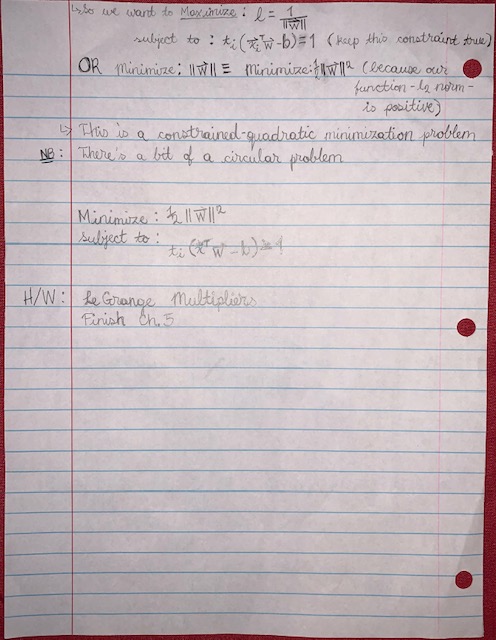 ↳So we want to Maximize : l = 1/||w⃗||
subject to : tᵢ(x⃗ᵢᵀw⃗-b)=1 (keep this constraint true)
OR Minimize: ||w⃗|| ≡ Minimize: ½||w⃗||² (because our
function-l₂ norm-
is positive)
↳ This is a constrained-quadratic minimization problem
NB: There's a bit of a circular problem
Minimize : ½ ||w⃗||²
subject to :
tᵢ (x⃗ᵀw⃗ - b) ≥ 1
H/W: Le Grange Multipliers
Finish Ch. 5